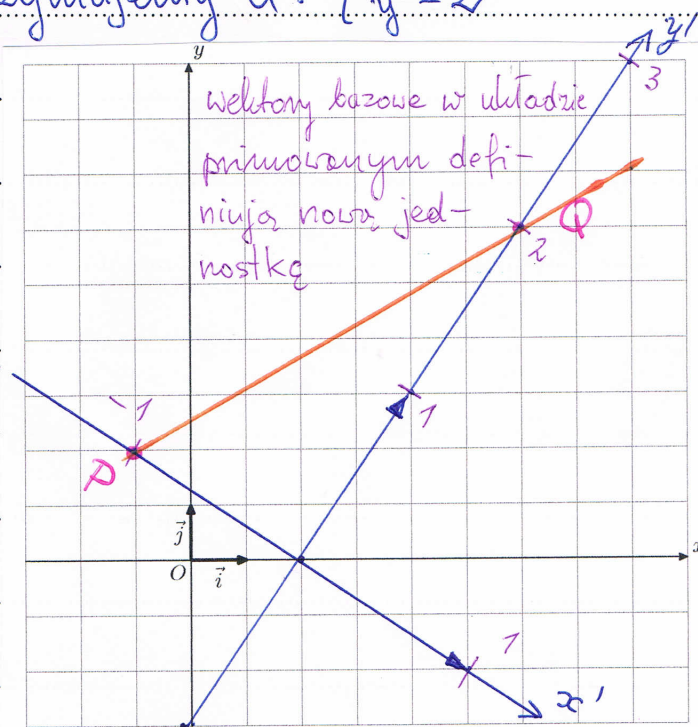 y = 2
y
y'
3
wektory bazowe w układzie
primowanym defi-
niują nową jed-
nostkę
Q
2
-1
1
P
j
x
O
i
1
x'